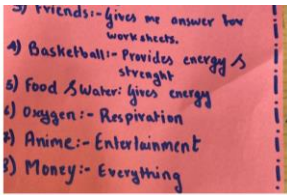 3) Friends:- Gives me answer for
worksheets.
4) Basketball:- Provides energy &
strenght
5) Food & Water: Gives energy
6) Oxygen:- Respiration
7) Anime:- Entertainment
8) Money:- Everything